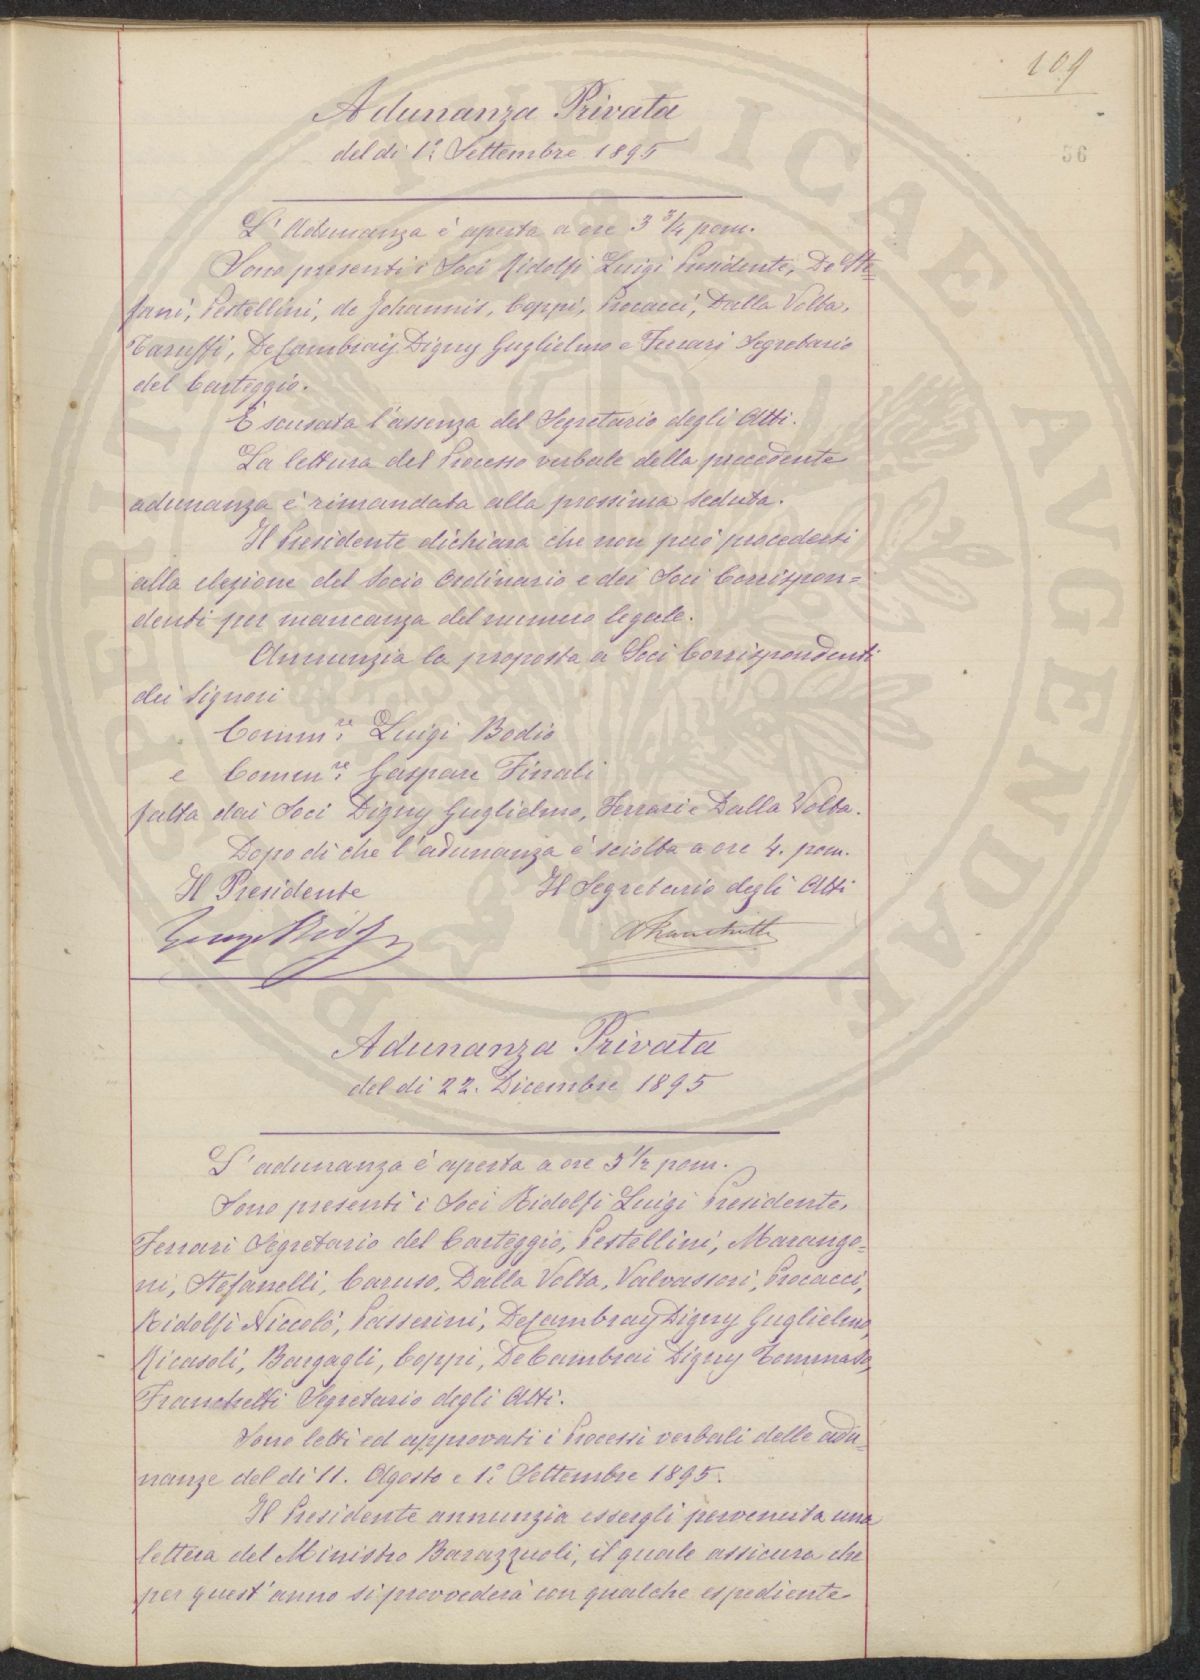 109
Adunanza Privata
del dì 1º Settembre 1895
36
L'Adunanza è aperta a ore 3 3/4 pom.
Sono presenti i Soci Ridolfi Luigi Presidente, De Ste=
fani, Pestellini, de Johannis, Coppi, Procacci, Dalla Volta,
Taruffi, De Cambray Digny Guglielmo e Ferrari Segretario
del Carteggio.
È scusata l'assenza del Segretario degli Atti.
La lettura del Processo verbale della precedente
adunanza è rimandata alla prossima seduta.
Il Presidente dichiara che non può procedersi
alla elezione del Socio Ordinario e dei Soci Corrispon=
denti per mancanza del numero legale.
Annunzia la proposta a Soci Corrispondenti
dei Signori
Commre. Luigi Bodio
e Commre. Gaspare Finali
fatta dai Soci Digny Guglielmo, Ferrari e Dalla Volta.
Dopo di che l'adunanza è sciolta a ore 4. pom.
Il Presidente Il Segretario degli Atti
Luigi Ridolfi AFranchetti
Adunanza Privata
del dì 22. Dicembre 1895
L'adunanza è aperta a ore 3 1/2 pom.
Sono presenti i Soci Ridolfi Luigi Presidente,
Ferrari Segretario del Carteggio, Pestellini, Marango=
ni, Stefanelli, Caruso, Dalla Volta, Valvassori, Procacci,
Ridolfi Niccolò, Passerini, De Cambray Digny Guglielmo,
Ricasoli, Bargagli, Coppi, De Cambrai Digny Tommaso,
Franchetti Segretario degli Atti.
Sono letti ed approvati i Processi verbali delle adu=
nanze del dì 11. Agosto e 1º Settembre 1895.
Il Presidente annunzia essergli pervenuta una
lettera del Ministro Barazzuoli, il quale assicura che
per quest'anno si provvederà con qualche espediente
PROSPERITATI PUBLICAE AVGENDAE